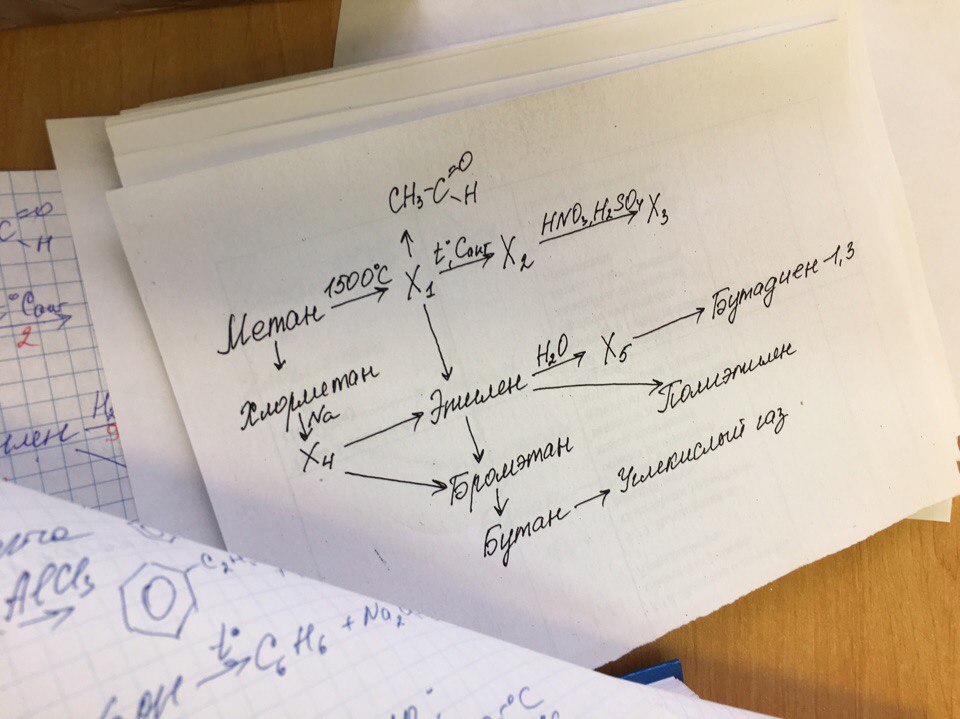 CH₃-C=O
-H
Метан 1500°C X₁ t°, Cакт X₂ HNO₃, H₂SO₄ X₃
Хлорметан
Na
X₄
Этилен H₂O X₅ Бутадиен 1,3
Полиэтилен
Бромэтан
Бутан Углекислый газ
C=O
H
° Cакт
2
илен H₂
9
AlCl₃
C₂H
t° C₆H₆ + Na₂
°C